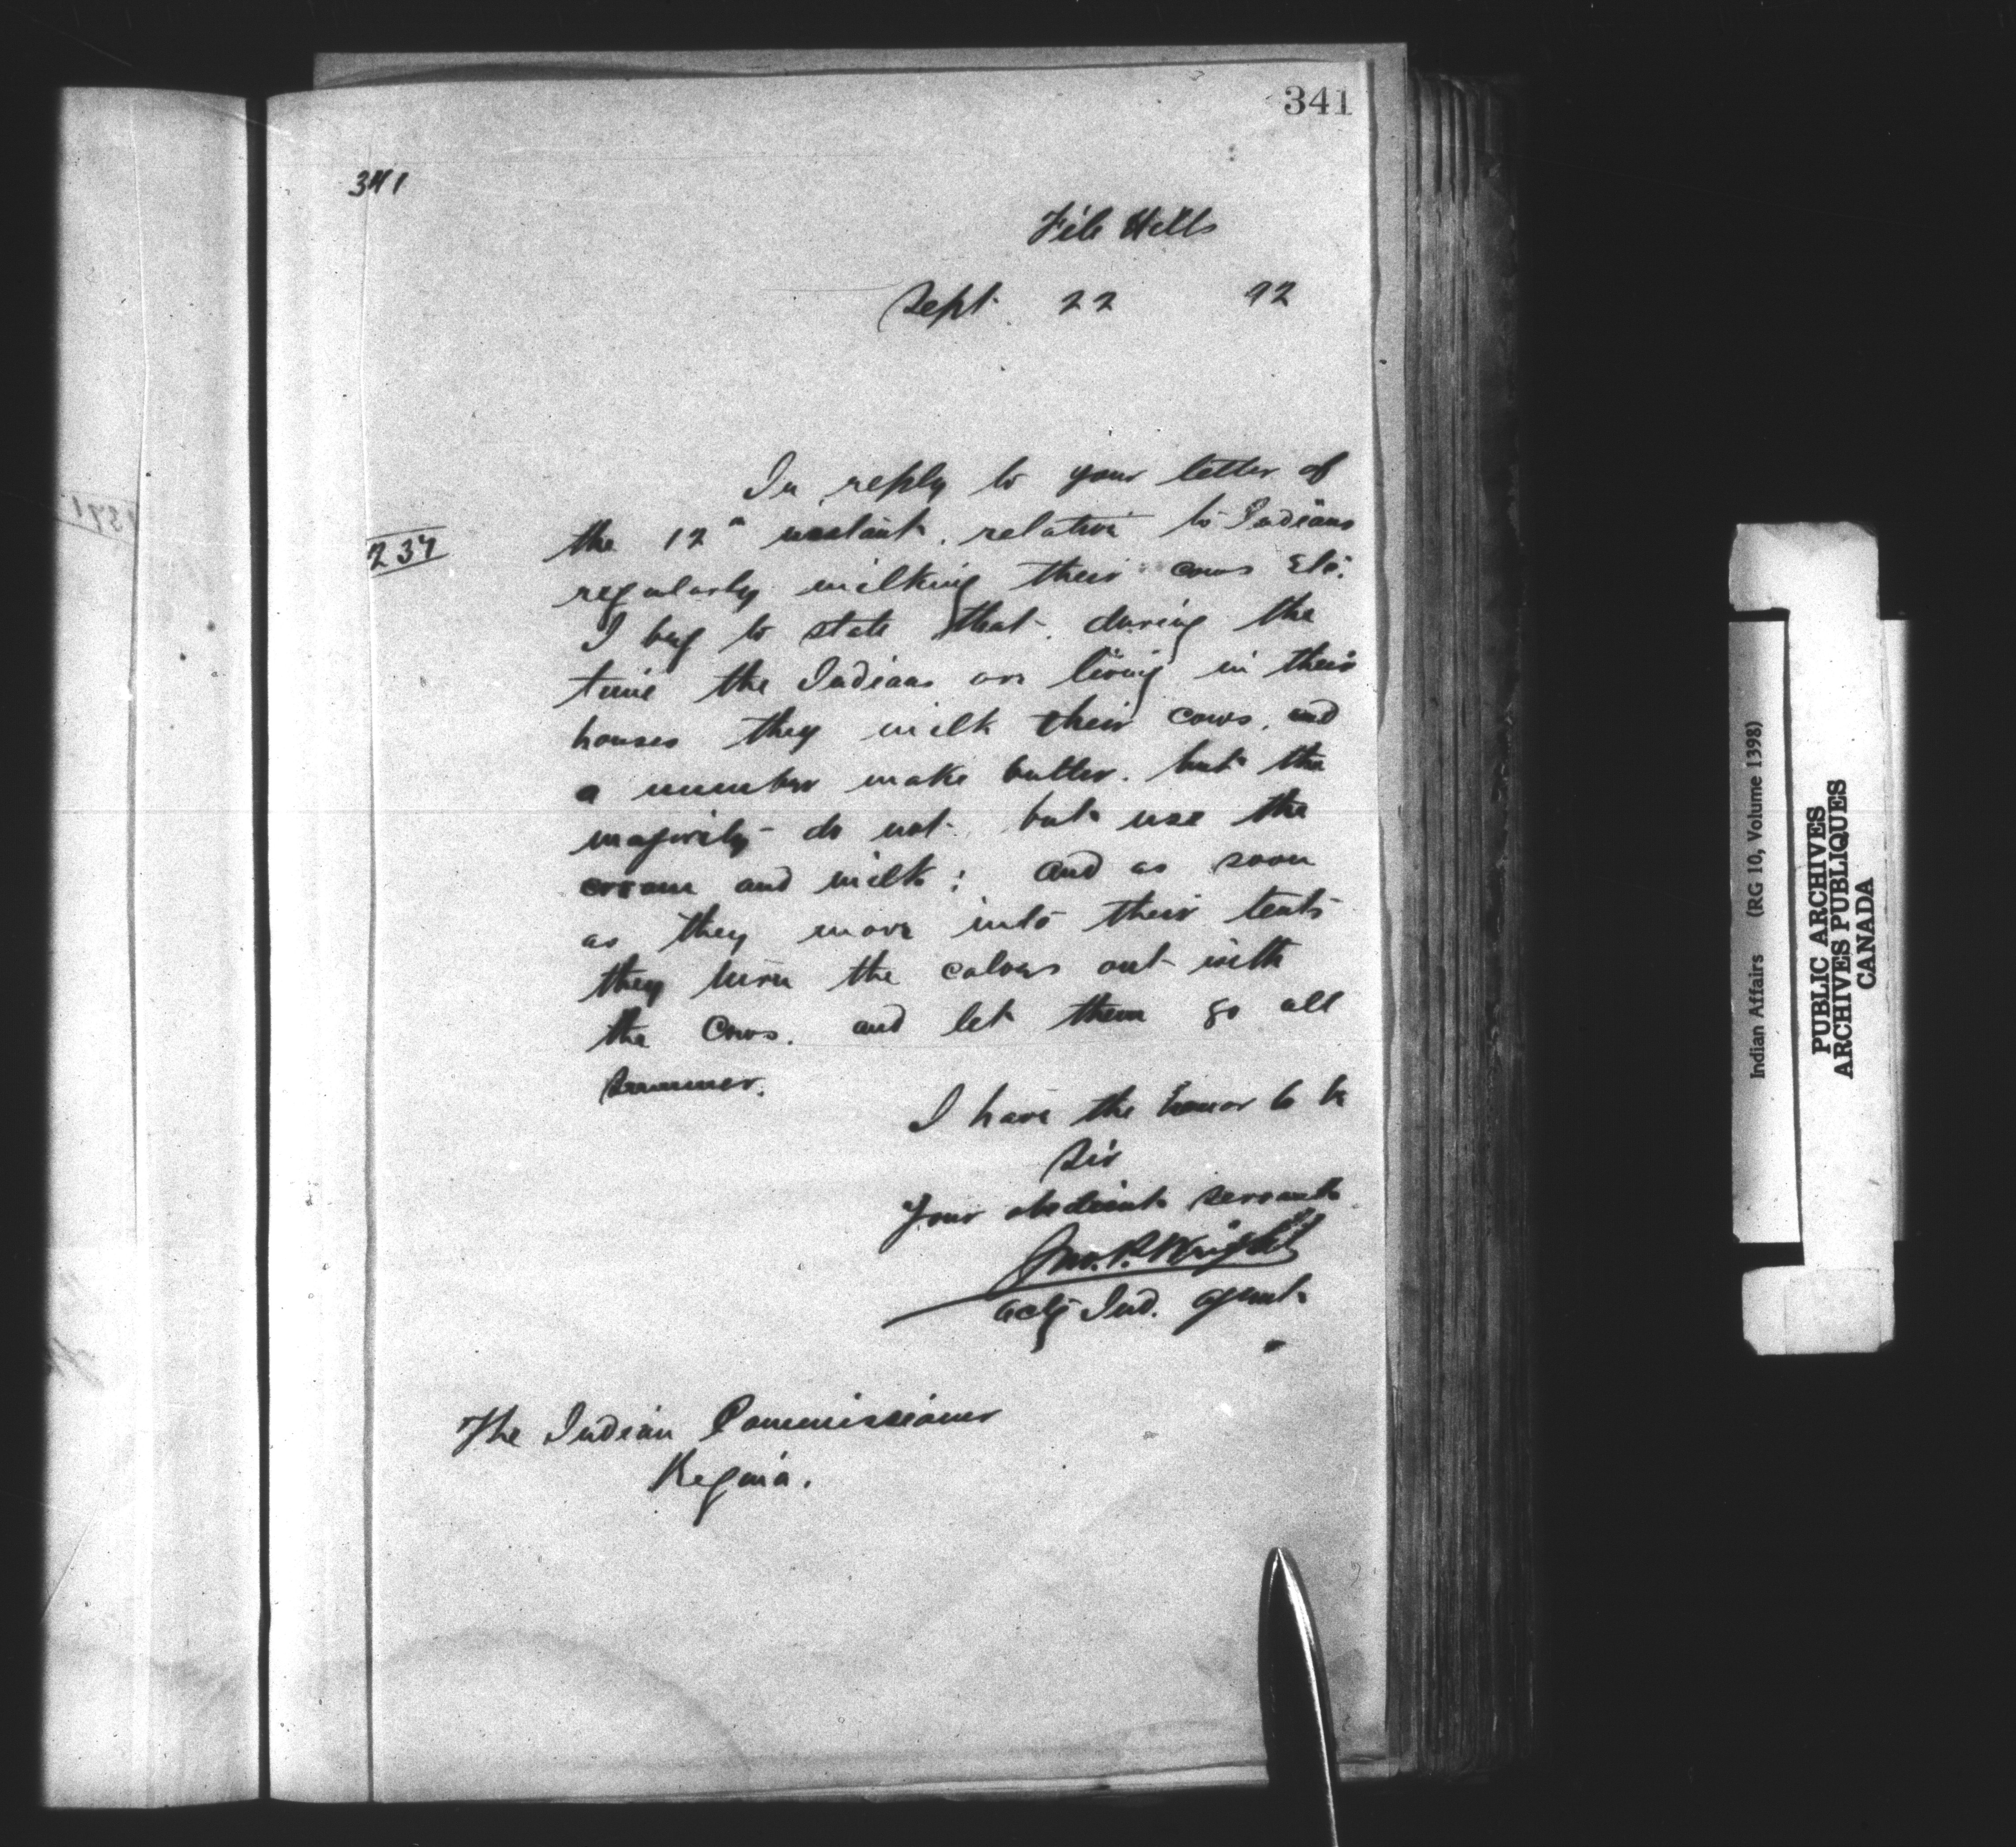 341
341
File Hills
Sept. 22 92
In reply to your letter of
237
the 12th instant. relative to Indians
regularly milking their cows Etc.
I beg to state that. during the
time the Indians are living in their
houses they milk their cows, and
a number make butter. but the
majority do not but use the
cream and milk; and as soon
as they move into their tents
they turn the calves out with
the cows. and let them go all
summer.
I have the honor to be
Sir
Your obedient servant
Jno. P. Wright
actg Ind. agent
The Indian Commissioner
Regina.
Indian Affairs (RG 10, Volume 1398)
PUBLIC ARCHIVES
ARCHIVES PUBLIQUES
CANADA